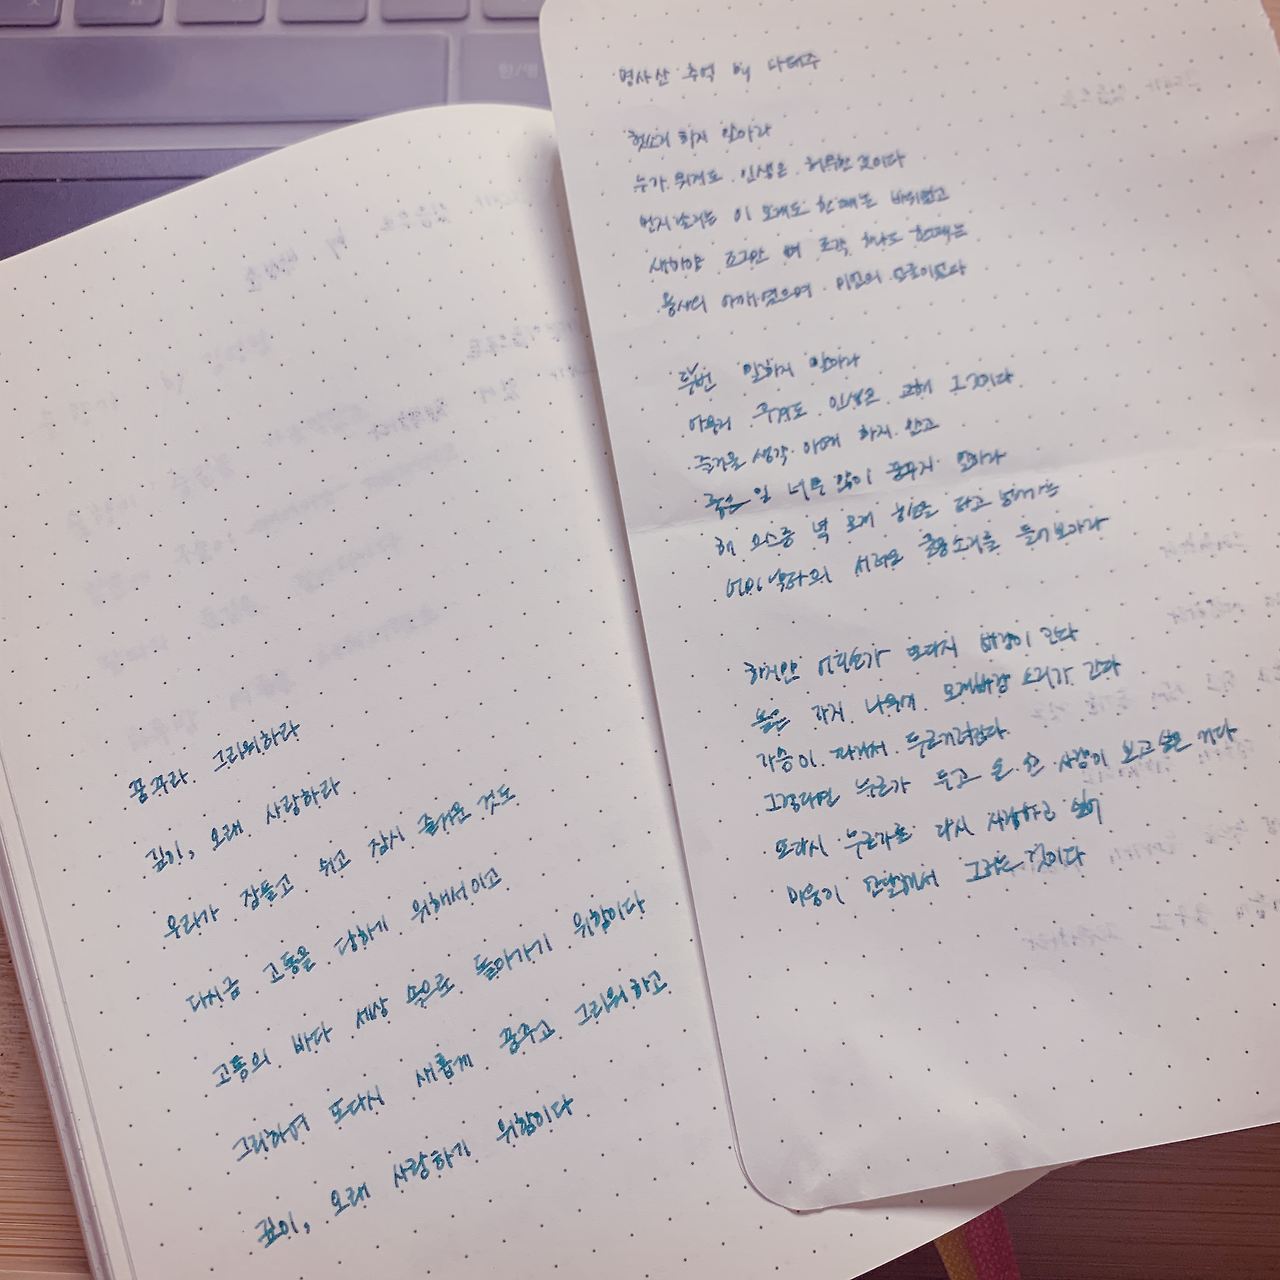 꿈꾸라 그리워하라
깊이, 오래 사랑하라
우리가 잠들고 쉬고 잠시 즐거운 것도
다시금 고통을 당하기 위해서이고
고통의 바다 세상 속으로 돌아가기 위함이다
그리하여 또다시 새롭게 꿈꾸고 그리워하고
깊이, 오래 사랑하기 위함이다
명사산 추억 by 나태주
헛소리 하지 말아라
누가 뭐래도 인생은 허무한 것이다
먼지 날리는 이 모래도 한때는 바위였고
새하얀 조그만 뼈 조각 하나도 한때는
용사의 어깨였으며 미인의 얼굴이었다
두번 말하지 말아라
아무리 우겨도 인생은 고해 그것이다
즐거울 생각 아예 하지 말고
좋은 일 너무 많이 꿈꾸지 말아라
해 으스름 녘 모래 능선을 타고 넘어가는
어미 낙타의 서러운 울음소리를 들어보아라
하지만 어디선가 또다시 바람이 분다
높은 가지 나뭇잎 모래바람 소리가 간다
가슴이 따라서 두근거린다
그렇다면 누군가 두고 온 한 사람이 보고싶은 거다
또다시 누군가를 다시 사랑하고 싶어
마음이 안달해서 그러는 것이다